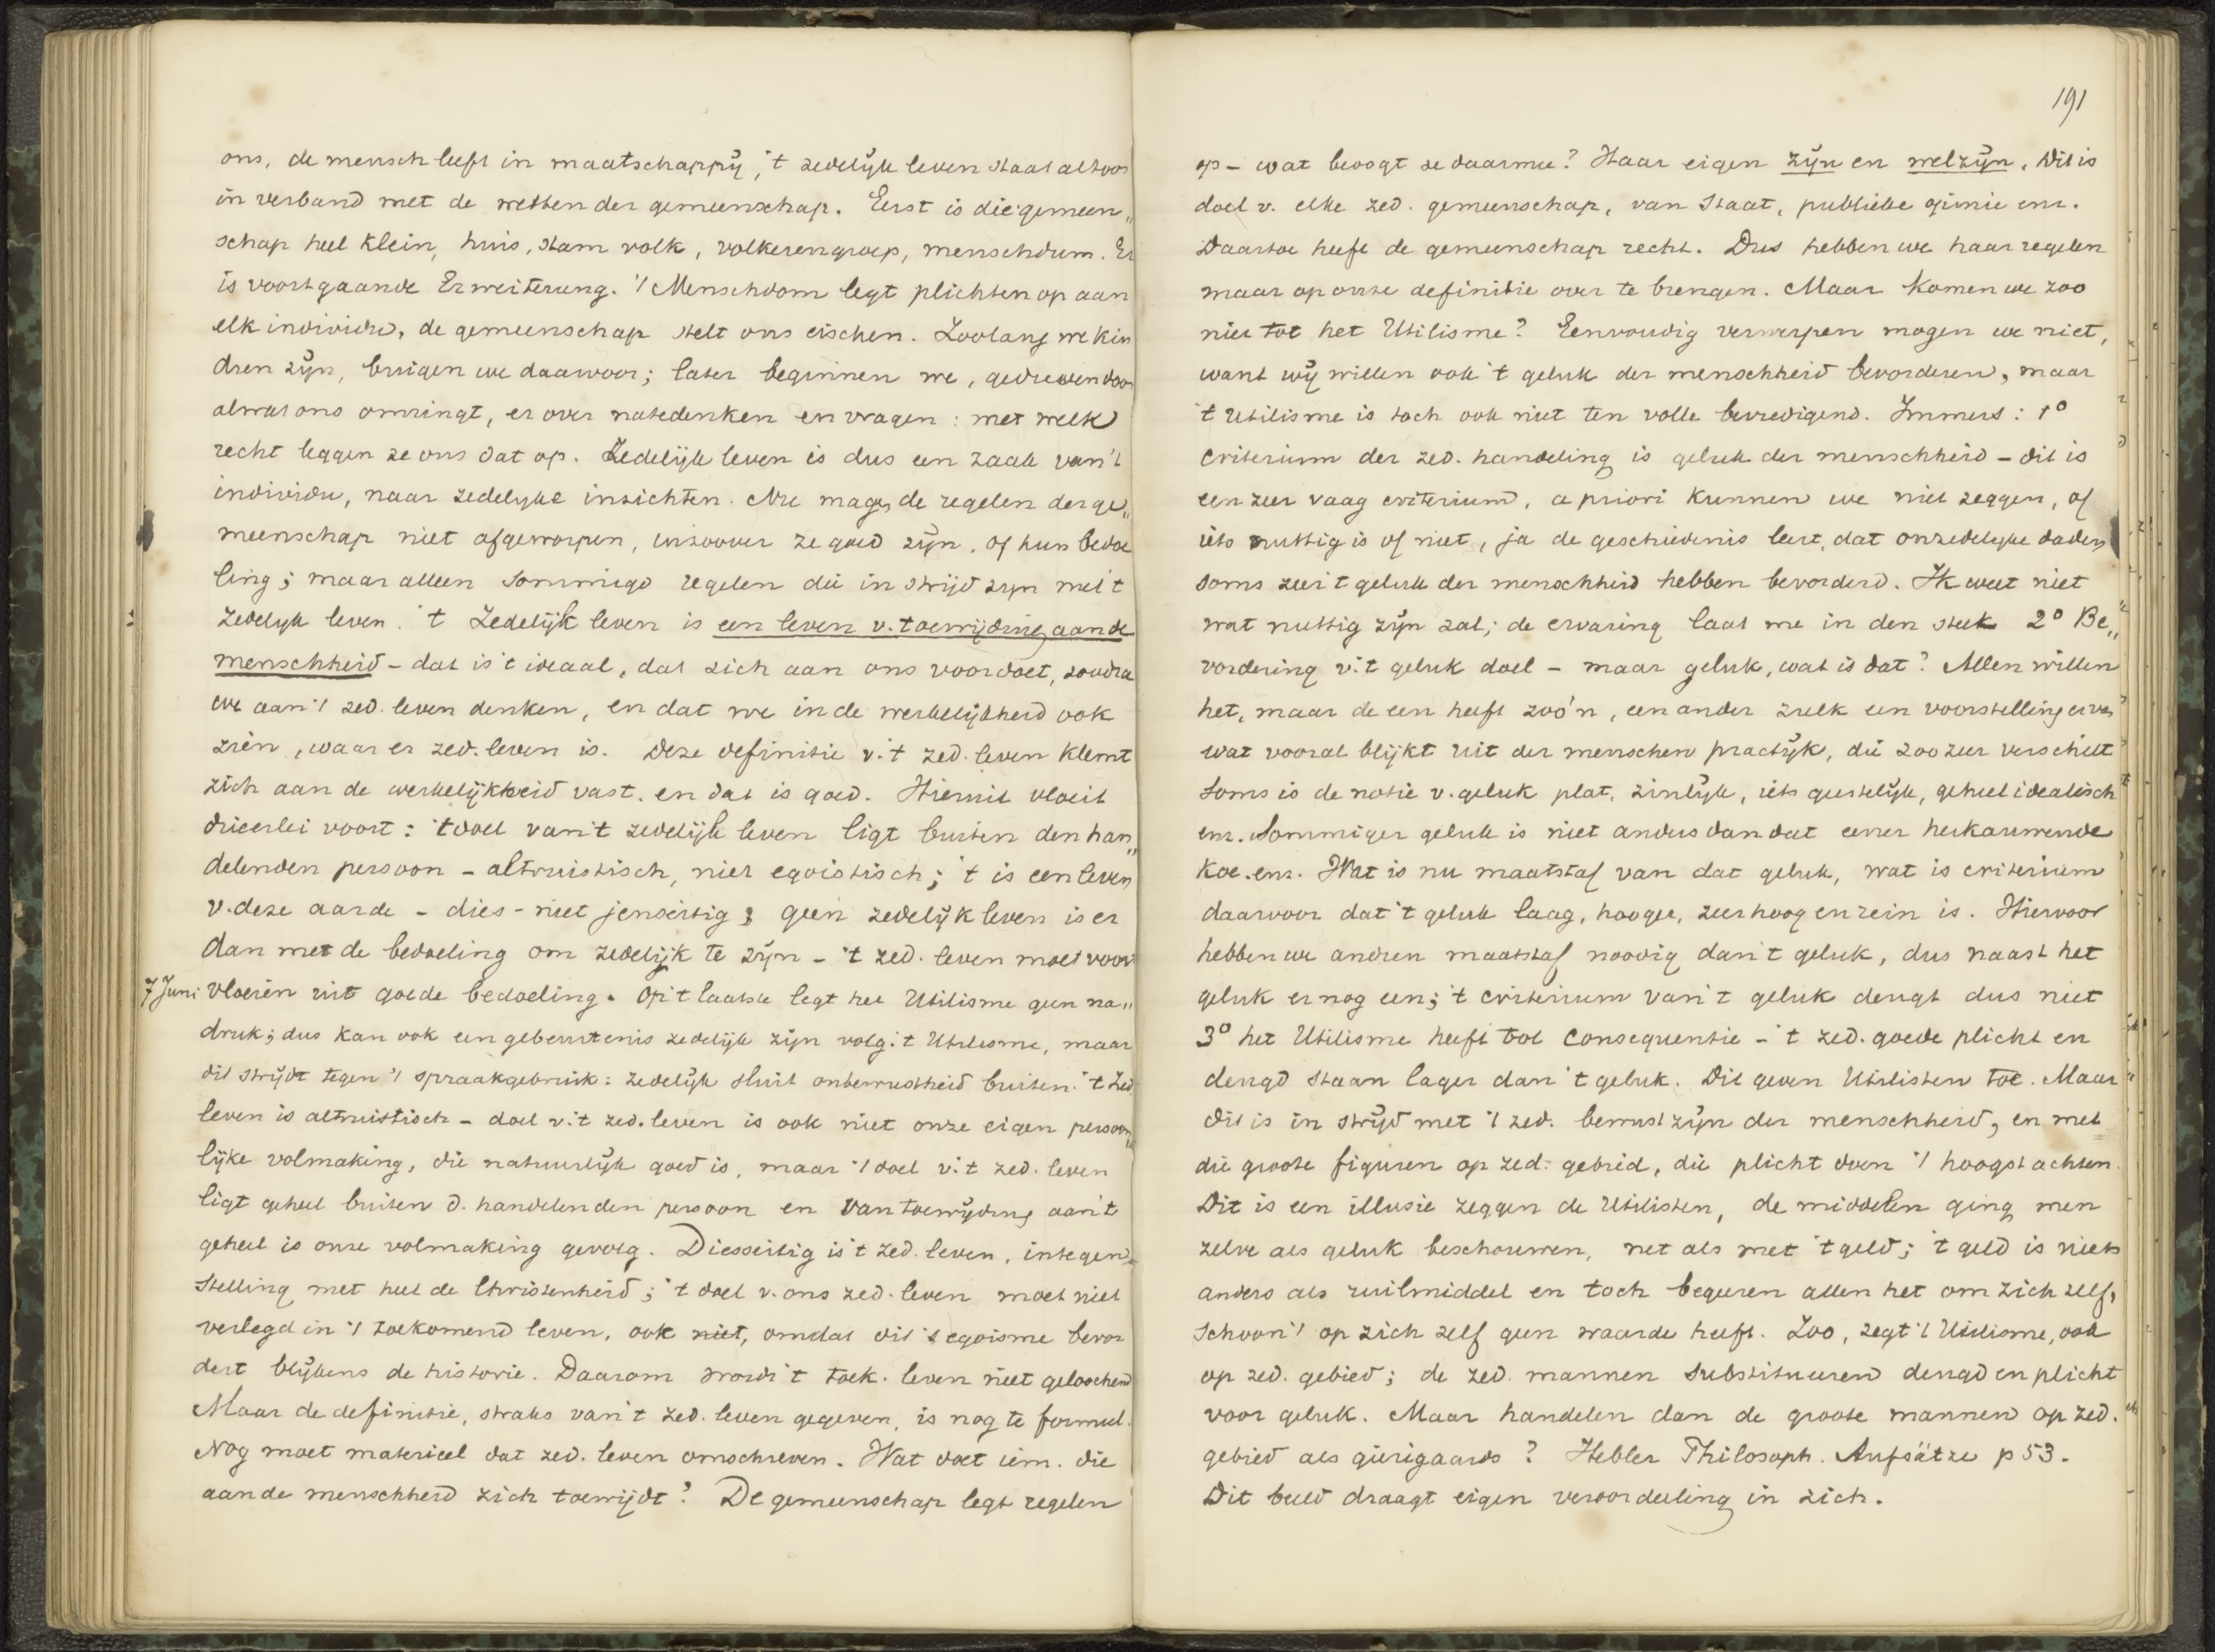 ons, de mensch leeft in maatschappij, 't zedelijk leven staat altoos
in verband met de wetten der gemeenschap. Eerst is die gemeen„
schap heel klein, huis, stam volk, volkerengroep, menschdom. Er
is voortgaande Erweiterung. 't Menschdom legt plichten op aan
elk individu, de gemeenschap stelt ons eischen. Zoolang we kin
dren zijn, buigen we daarvoor; later beginnen we, gedreven door
alwat ons omringt, er over natedenken en vragen: met welk
recht leggen ze ons dat op. Zedelijk leven is dus een zaak van 't
individu, naar zedelijke inzichten. Nu mag de regelen der ge„
meenschap niet afgeworpen, inzoover ze goed zijn, of hun bedoe
ling; maar alleen sommige regelen die in strijd zijn met 't
zedelijk leven. 't Zedelijk leven is een leven v. toewijding aan de
menschheid - dat is 't ideaal, dat zich aan ons voordoet, zoodra
we aan 't zed. leven denken, en dat we in de werkelijkheid ook
zien, waar er zed. leven is. Deze definitie v. 't zed. leven klemt
zich aan de werkelijkheid vast, en dat is goed. Hieruit vloeit
drieerlei voort: 't doel van 't zedelijk leven ligt buiten den han„
delenden persoon - altruistisch, niet egoistisch; 't is een leven
v. deze aarde - dies - niet jenseitig; geen zedelijk leven is er
dan met de bedoeling om zedelijk te zijn - 't zed. leven moet voort
7 Juni vloeien uit goede bedoeling. Op 't laatste legt het Utilisme geen na„
druk; dus kan ook een gebeurtenis zedelijk zijn volg. 't Utilisme, maar
dit strijdt tegen 't spraakgebruik: zedelijk sluit onbewustheid buiten. 't Zed.
leven is altruistisch - doel v. 't zed. leven is ook niet onze eigen persoon„
lijke volmaking, die natuurlijk goed is, maar 't doel v. 't zed. leven
ligt geheel buiten d. handelenden persoon en van toewijding aan 't
geheel is onze volmaking gevolg. Diesseitig is 't zed. leven, in tegen„
stelling met heel de Christenheid; 't doel v. ons zed. leven moet niet
verlegd in 't toekomend leven, ook niet, omdat dit 't egoisme bevor
dert blijkens de historie. Daarom wordt 't toek. leven niet geloochend
Maar de definitie, straks van 't zed. leven gegeven, is nog te formeel.
Nog moet materieel dat zed. leven omschreven. Wat doet iem. die
aan de menschheid zich toewijdt? De gemeenschap legt regelen
191
op - wat beoogt ze daarmee? Haar eigen zijn en welzijn. Dit is
doel v. elke zed. gemeenschap, van Staat, publieke opinie enz.
Daartoe heeft de gemeenschap recht. Dus hebben we haar regelen
maar op onze definitie over te brengen. Maar komen we zoo
niet tot het Utilisme? Eenvoudig verwerpen mogen we niet,
want wij willen ook 't geluk der menschheid bevorderen, maar
't Utilisme is toch ook niet ten volle bevredigend. Immers: 1°
criterium der zed. handeling is geluk der menschheid - dit is
een zeer vaag criterium, a priori kunnen we niet zeggen, of
iets nuttig is of niet, ja de geschiedenis leert, dat onzedelijke daden
soms zeer 't geluk der menschheid hebben bevorderd. Ik weet niet
wat nuttig zijn zal; de ervaring laat me in den steek 2° Be„
vordering v. 't geluk doel - maar geluk, wat is dat? Allen willen
het, maar de een heeft zoo'n, een ander zulk een voorstelling ervan
wat vooral blijkt uit der menschen practijk, die zoo zeer verschilt
Soms is de notie v. geluk plat, zinlijk, iets geestelijk, geheel idealisch
enz. Sommiger geluk is niet anders dan dat eener herkauwende
koe. enz. Wat is nu maatstaf van dat geluk, wat is criterium
daarvoor dat 't geluk laag, hooger, zeer hoog en rein is. Hiervoor
hebben we andren maatstaf noodig dan 't geluk, dus naast het
geluk er nog een; 't criterium van 't geluk deugt dus niet
3° het Utilisme heeft tot consequentie - 't zed. goede plicht en
deugd staan lager dan 't geluk. Dit geven Utilisten toe. Maar
dit is in strijd met 't zed. bewustzijn der menschheid, en met
die groote figuren op zed. gebied, die plicht doen 't hoogst achten.
Dit is een illusie zeggen de Utilisten, de middelen ging men
zelve als geluk beschouwen, net als met 't geld; 't geld is niets
anders als ruilmiddel en toch begeeren allen het om zich zelf,
schoon 't op zich zelf geen waarde heeft. Zoo, zegt 't Utilisme, ook
op zed. gebied; de zed. mannen substitueeren deugd en plicht
voor geluk. Maar handelen dan de groote mannen op zed.
gebied als gierigaards? Hebler Philosoph. Aufsätze p 53.
Dit beeld draagt eigen veroordeeling in zich.